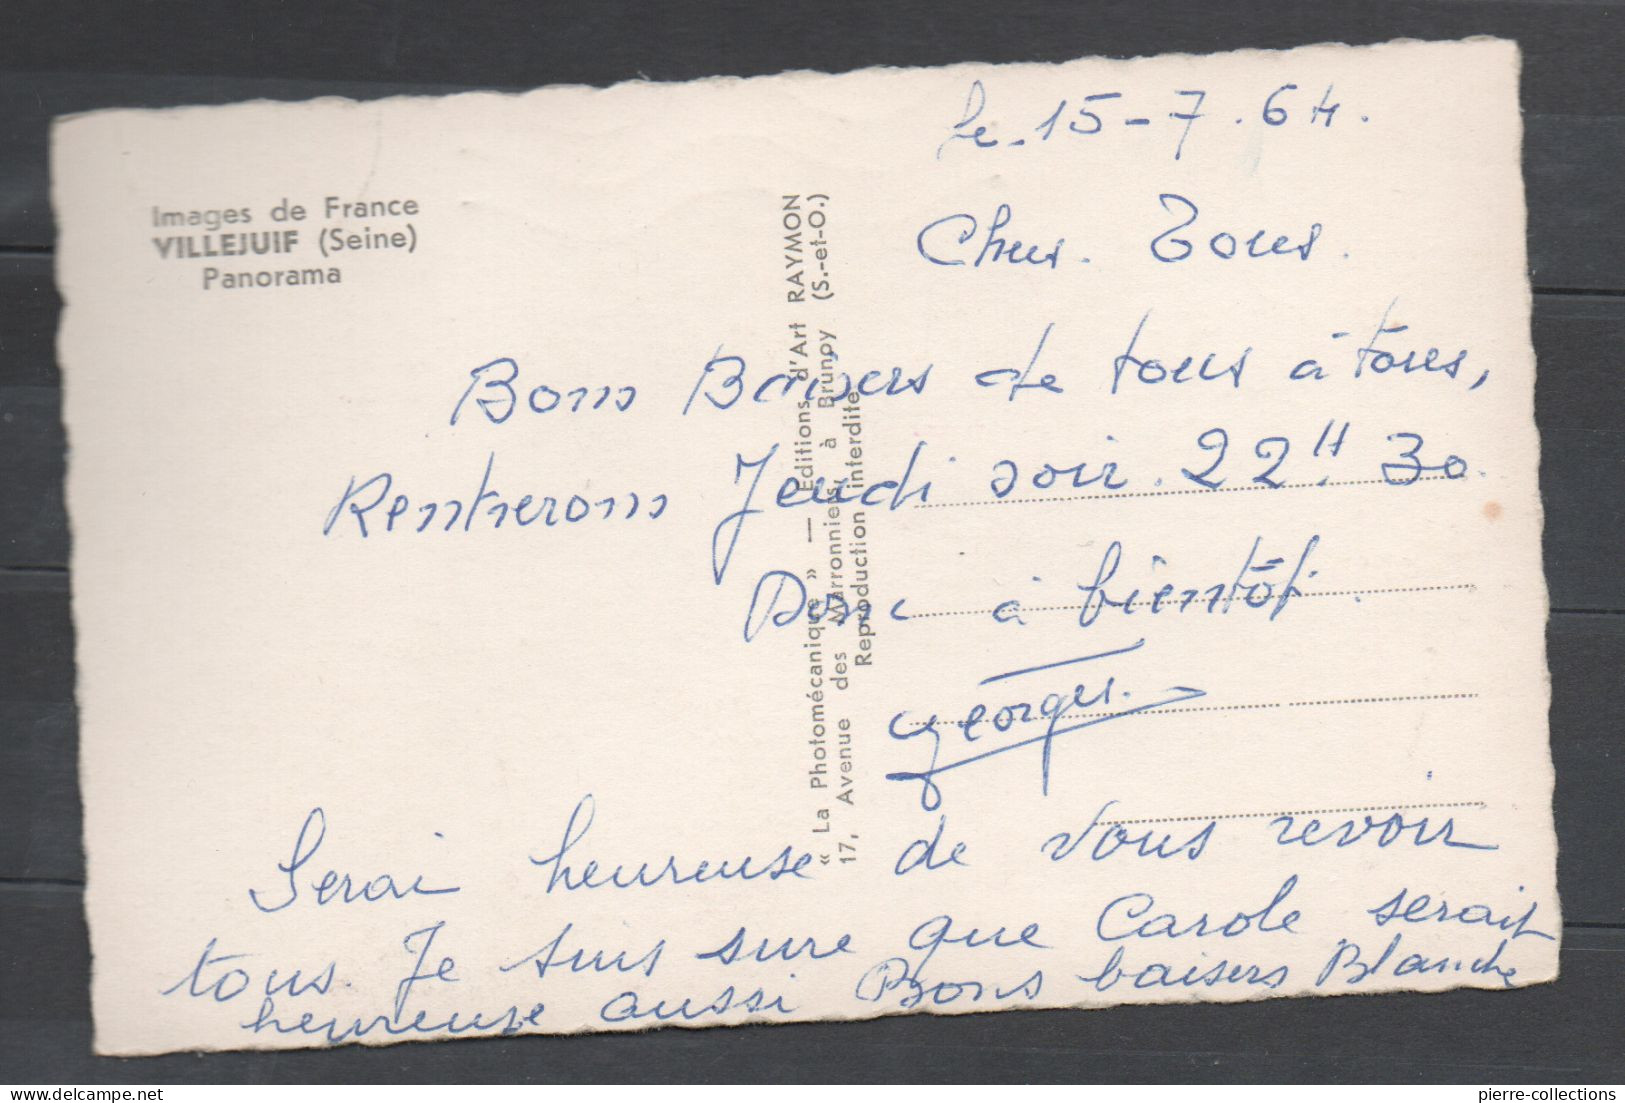 Images de France
VILLEJUIF (Seine)
Panorama
« La Photomécanique » — Editions d'Art RAYMON
17, Avenue des Marronniers, à Brunoy (S.-et-O.)
Reproduction interdite
le 15-7.64.
Chers. Tous.
Bons Baisers de tous à tous,
Rentrerons Jeudi soir. 22H 30.
Donc à bientôt.
Georges.
Serai heureuse de vous revoir
tous. Je suis sure que Carole serait
heureuse aussi Bons baisers Blanche
Delcampe.net
pierre-collections